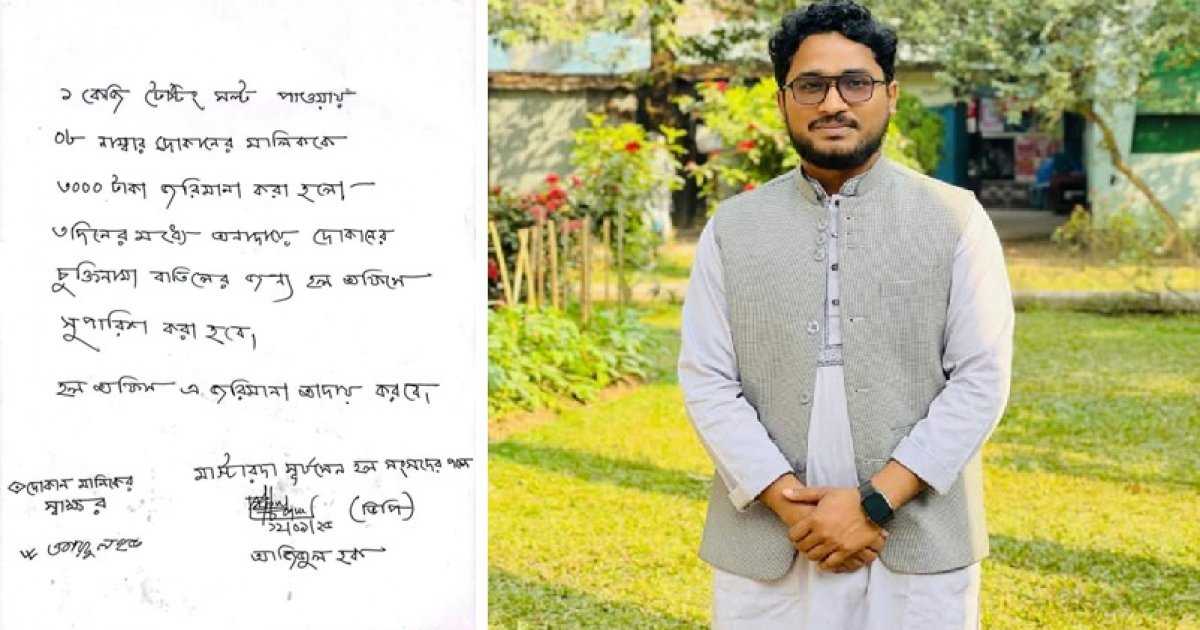 ১ কেজি টেস্টিং সল্ট পাওয়ায়
০৮ নাম্বার দোকানের মালিককে
৩০০০ টাকা জরিমানা করা হলো।
৩দিনের মধ্যে অনাদায়ে দোকানের
চুক্তিনামা বাতিলের জন্য হল অফিসে
সুপারিশ করা হবে।
হল অফিস এ জরিমানা আদায় করবে।
দোকান মালিকের
স্বাক্ষর
মাস্টারদা সূর্যসেন হল সংসদের পক্ষে
(ভিপি)
আজিজুল হক